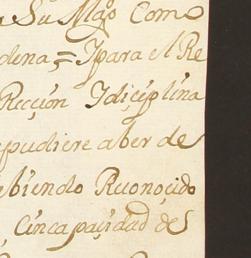 Su Mag.o Como
dena = Ipara el Re
Reccion Idiciplina
epudiere aber de
ebiendo Reconoçido
çincapaçidad de